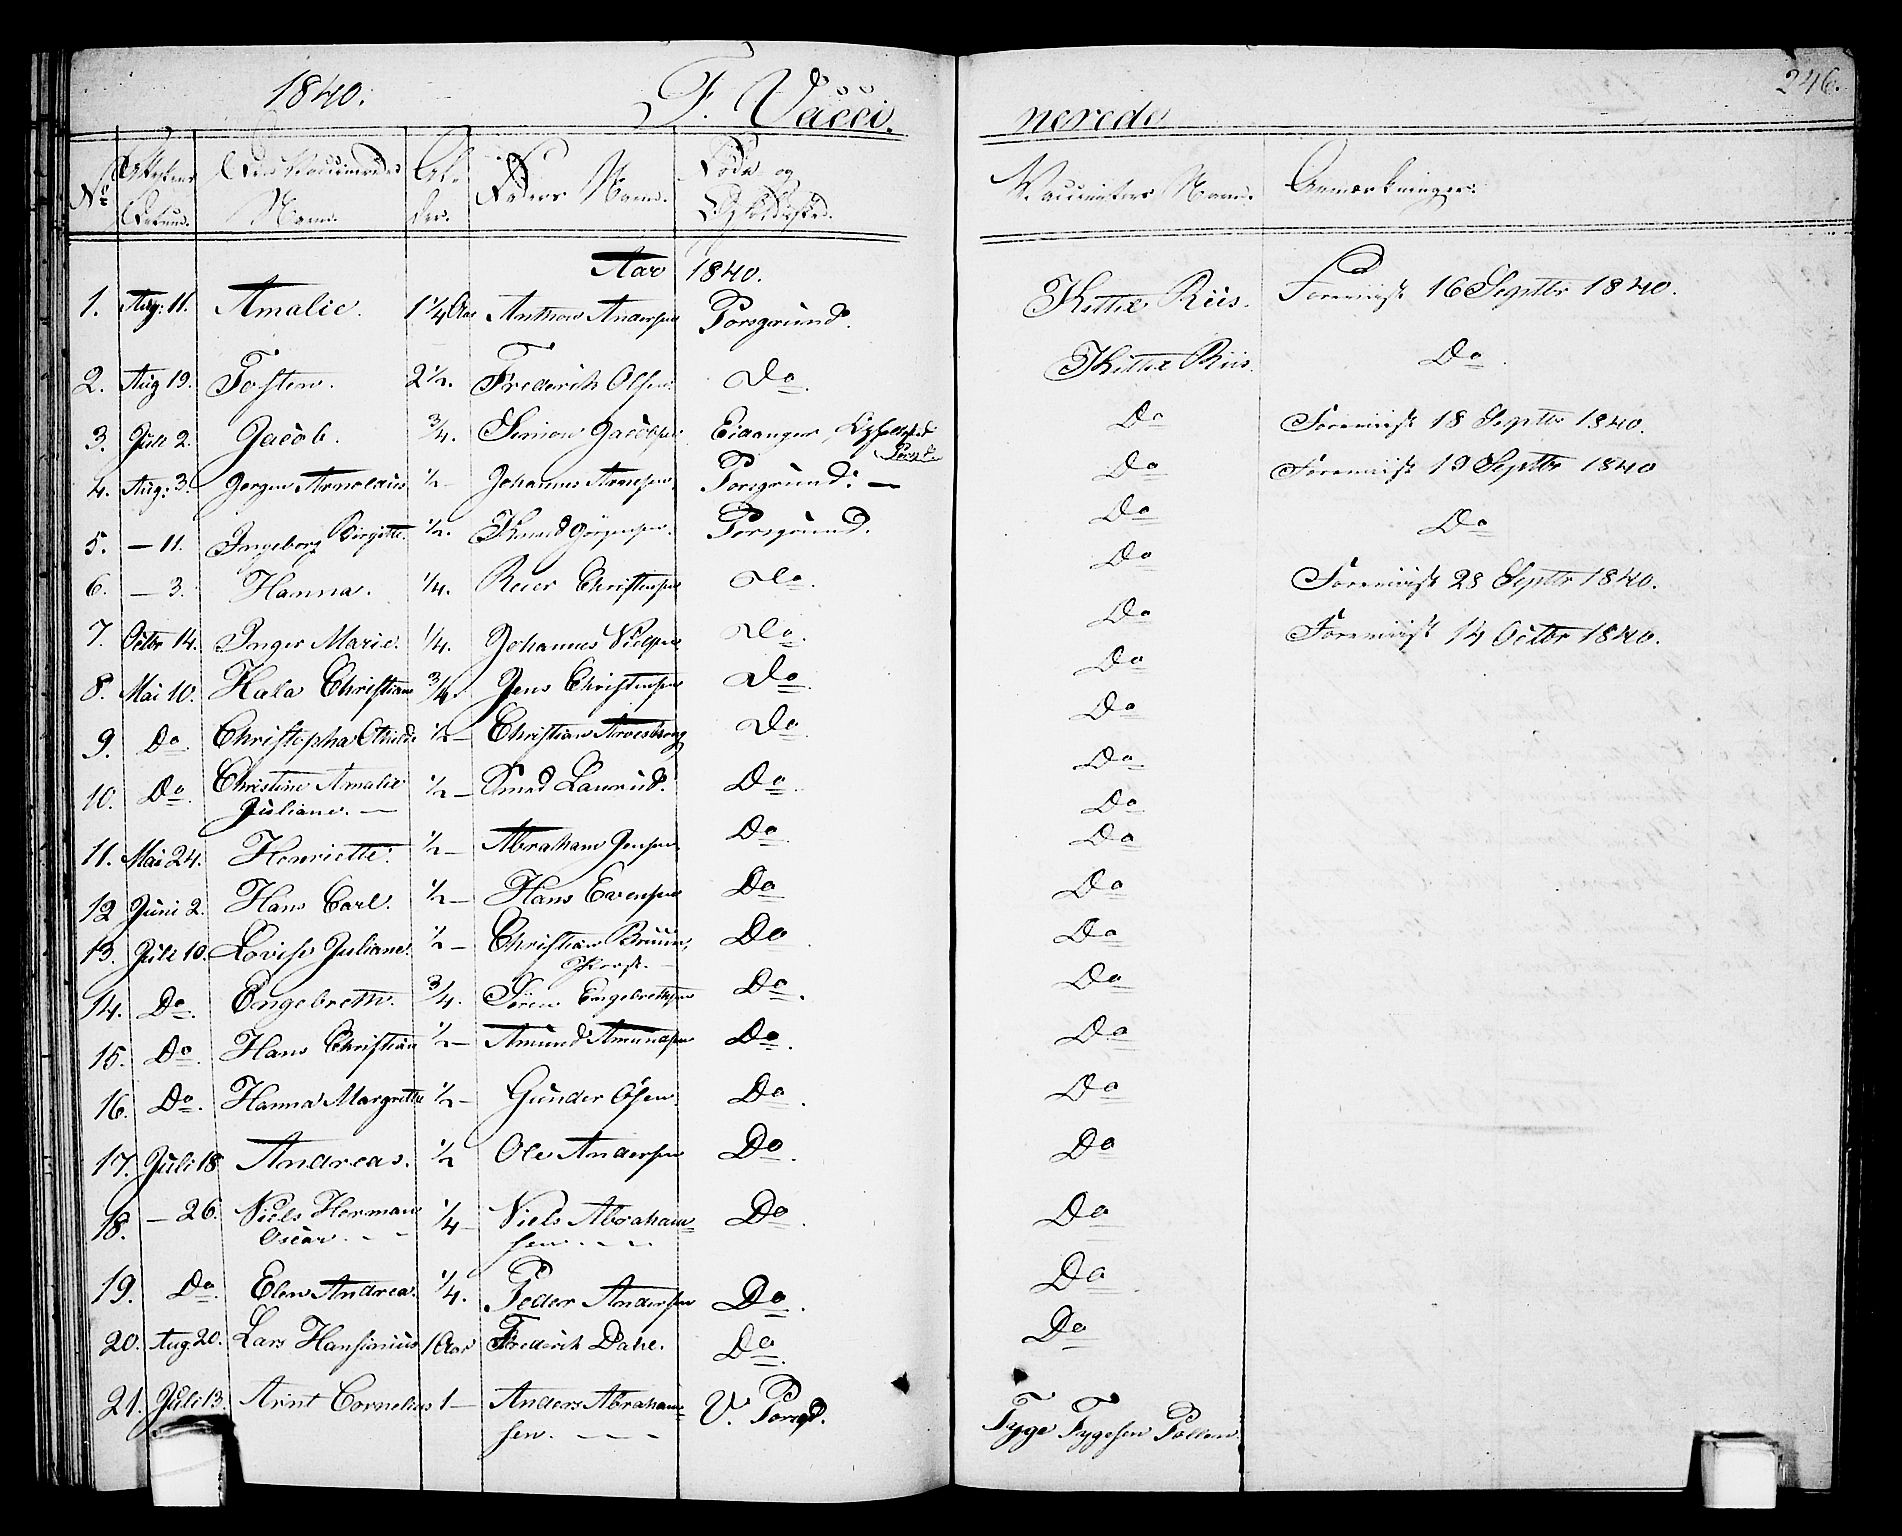 1840. F. Vacci, nerede 246.
No Attestens Datum. Den Vaccineredes Navn. Alder. Faders Navn. Föde og Opholdssted. Vaccinateurs Navn. Anmærkninger.
Aar 1840.
1. Aug: 11. Amalie. 1 1/4 Aar Anthon Andersen Porsgrund. Kittil Riis. Foreviist 16 Septbr 1840.
2. Aug 19. Tosten. 2 1/2. Frederich Olsen. Do. Kittil Riis. Do.
3. Juli 2. Jacob. 3/4. Simon Jacobsen Eidanger, Do Foreviist 18 Septbr 1840.
4. Aug: 3. Jörgen Arnoldus 1/2 — Johannes Porsgrund. — Do Foreviist 19 Septbr 1840
5. — 11. Ingeborg Birgitte. 1/2. Knud Jörgensen. Porsgrund. Do Do
6. — 3. Hanna. 1/4. Reier Christensen Do. Do Foreviist 28 Septbr 1840.
7. Octbr 14. Inger Marie. 1/4. Johannes Nielsen Do. Do Foreviist 14 Octbr 1840.
8. Mai 10. Christiane 3/4. Jens Christensen Do. Do
9. Do. Christopha 1/2 — Christian Do. Do
10. Do. Christine Amalie 1/2 — Do. Do
Juliane. —
11. Mai 24. Henriette. 1/2 — Abraham Jensen Do. Do
12 Juni 2. Hans Carl. 1/2 — Hans Evensen Do Do
13. Juli 10. Lovise Juliane. 1/2 — Christian Bruun, Do Do
14. Do. Engebreth. 3/4. Sören Engebrethsen Do. Do
15. Do. Hans Christian 1/2 — Amund Amundsen Do. Do
16. Do. Hanna Margrethe 1/2 — Gunder Olsen. Do. Do
17. Juli 18 Andreas. 1/2 Ole Andersen Do. Do
18. — 26. Niels Herman 1/4 — Niels Abraham= Do. Do
Oscar. — — sen. — — —
19. Do. Elen Andrea. 1/4. Peder Andersen Do. Do
20. Aug. 20. Lars Hansinius 1 Aar Frederik Dahl. Do. Do
21. Juli 13. Arnt Cornelius 1 — Anders Abraham= V. Porsgd. Tyge Tygesen
sen. — — —